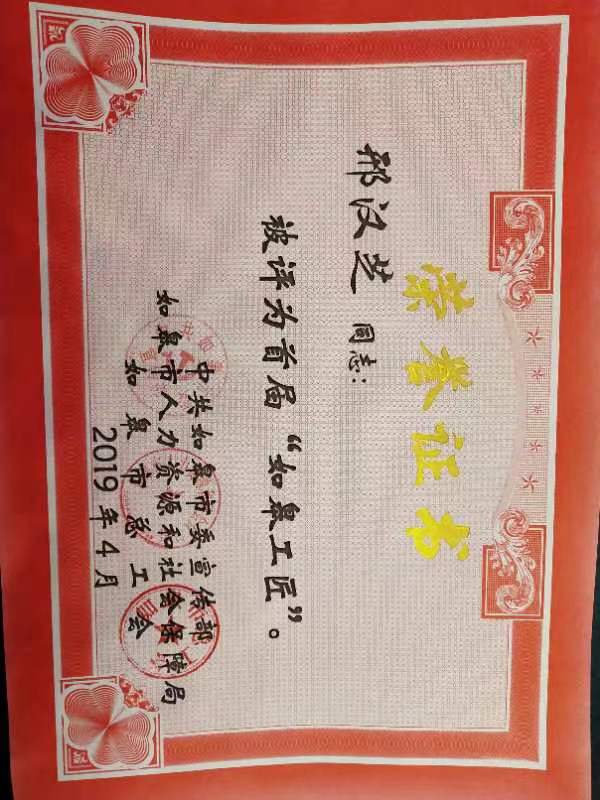 荣誉证书
邢汉芝 同志：
被评为首届“如皋工匠”。
中共如皋市委宣传部
如皋市人力资源和社会保障局
如皋市总工会
2019年4月